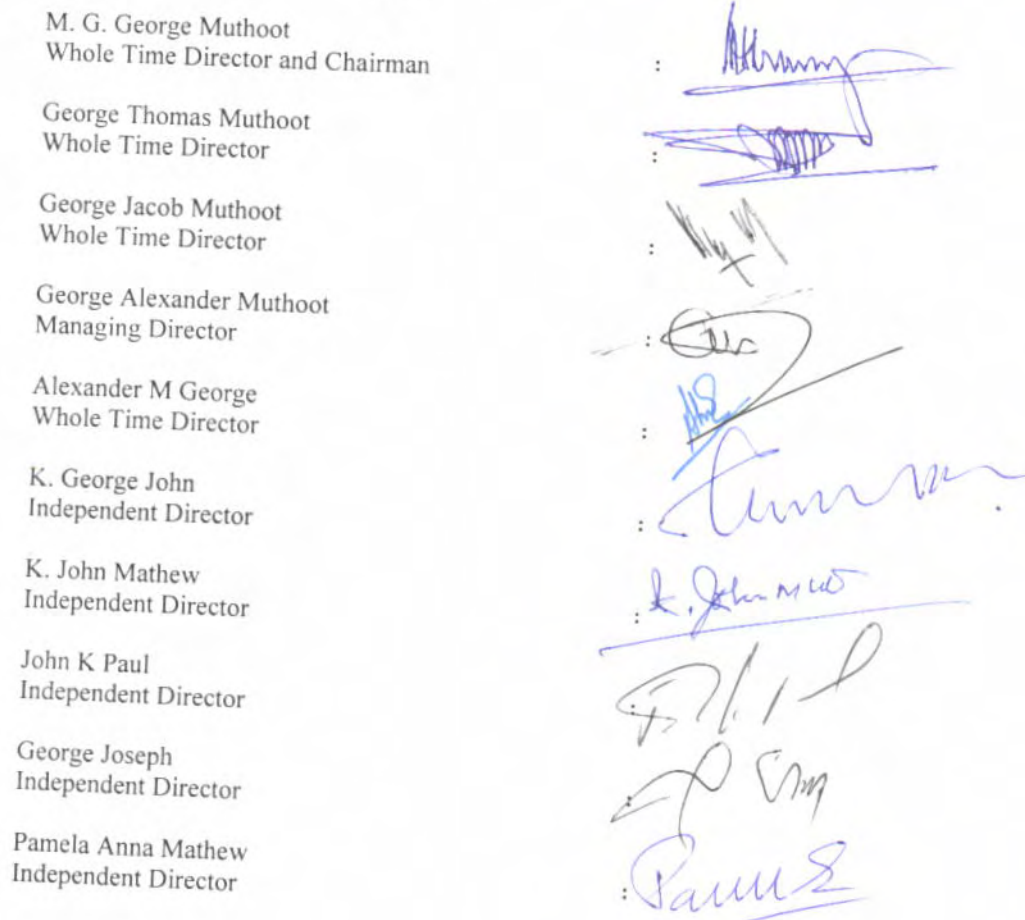 M. G. George Muthoot
Whole Time Director and Chairman :
George Thomas Muthoot
Whole Time Director :
George Jacob Muthoot
Whole Time Director :
George Alexander Muthoot
Managing Director :
Alexander M George
Whole Time Director :
K. George John
Independent Director :
K. John Mathew
Independent Director :
John K Paul
Independent Director :
George Joseph
Independent Director :
Pamela Anna Mathew
Independent Director :